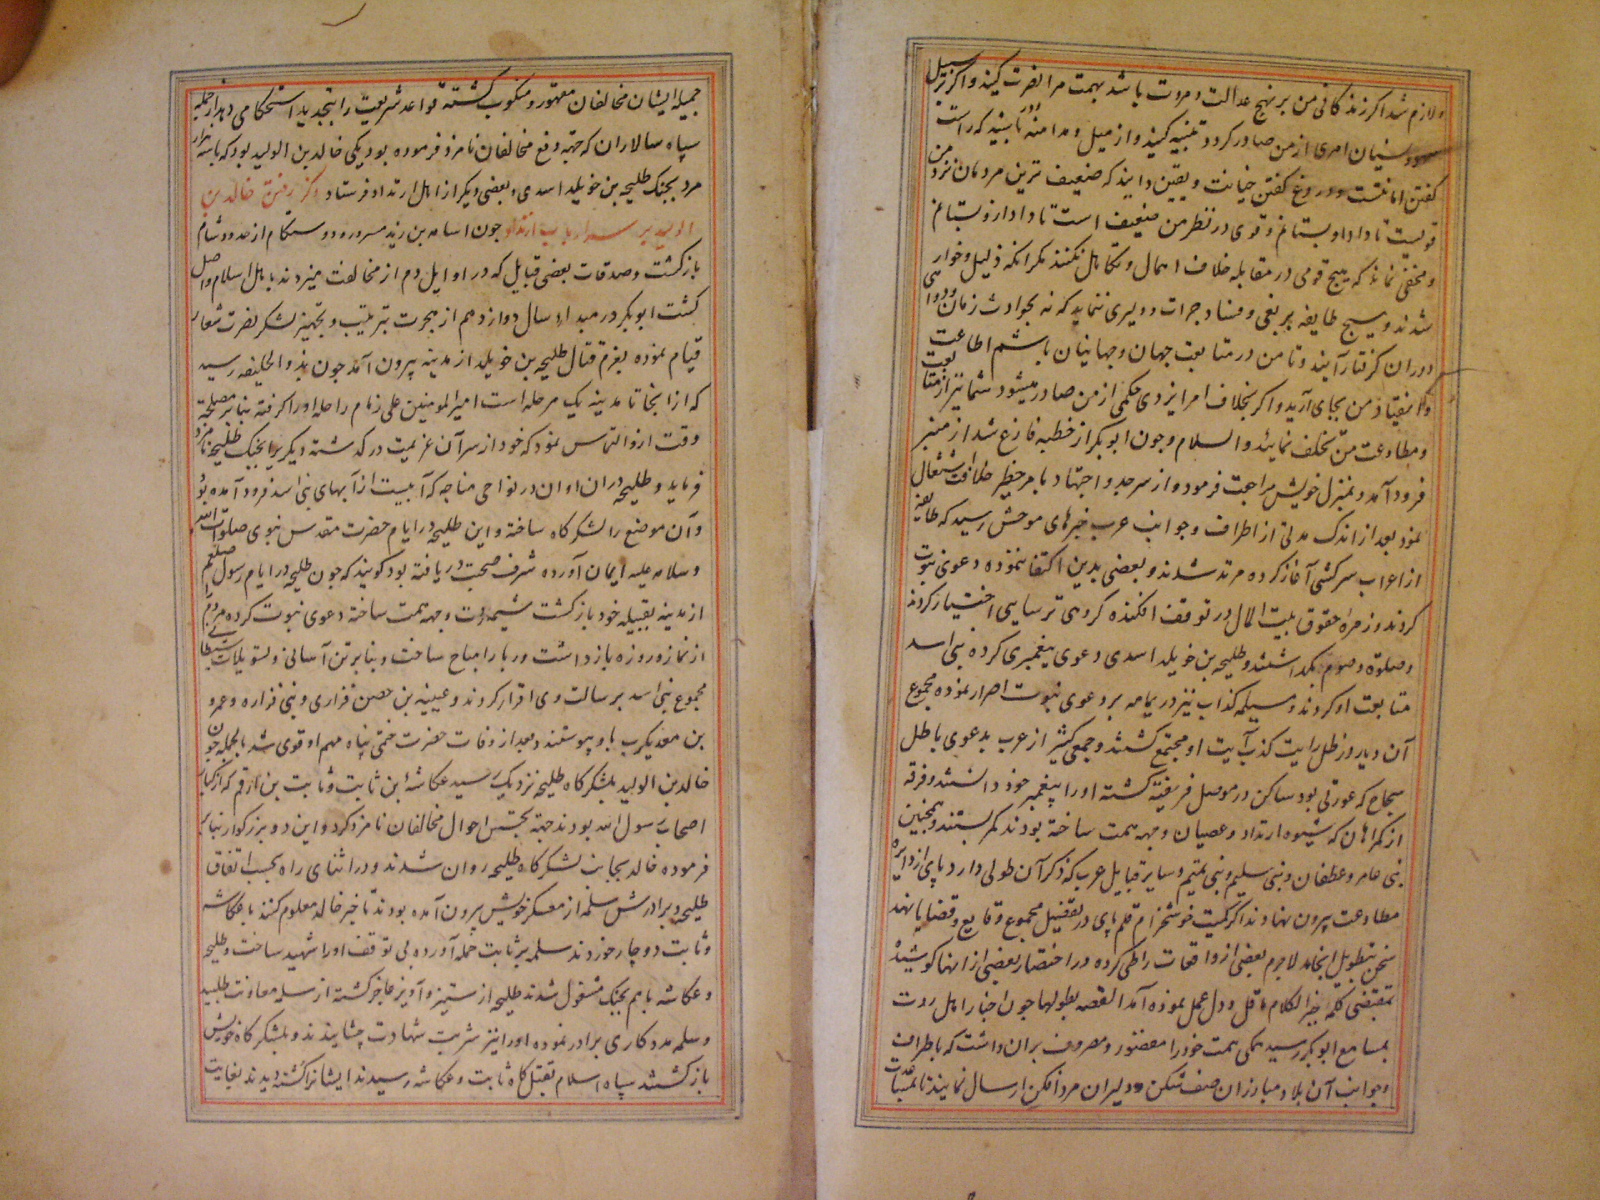 ولازم شد اکر زندکانی من بر نهج عدالت و مروت باشد بهمت مرا نصرت کنید و اکر بر سبیل
سهو و نسیان امری از من صادر کردد تنبیه کنید و از میل و مداهنه دور باشید که راست
کفتن امانتست و دروغ کفتن خیانت و یقین دانید که ضعیف ترین مردمان نزد من
قویست تا داد او بستانم و قوی در نظر من ضعیف است تا داد ازو بستانم
و مخفی نماند که هیچ قومی در مقابله خلاف اهمال و تکاهل نکنند مکر انکه ذلیل و خوار
شدند و هیچ طایفه بر بغی و فساد جرات و دلیری ننماید که نه بحوادث زمان و دواهی
دوران کرفتار آیند و تا من در متابعت جهان و جهانیان باشم اطاعت
و انقیاد من بجای آرید و اکر بخلاف امر ایزدی حکمی از من صادر میشود شما نیز از متابعت
و مطاوعت من تخلف نمایند والسلام و چون ابوبکر از خطبه فارغ شد از منبر
فرود آمد و بمنزل خویش مراجعت فرمود و از سر جد و اجتهاد بامر خطیر خلافت اشتغال
نمود بعد از اندک مدتی از اطراف و جوانب عرب خبرهای موحش رسید که طایفه
از اعراب سرکشی آغاز کرده مرتد شدند و بعضی بدین اکتفا ننموده دعوی نبوت
کردند و زمره حقوق بیت المال در توقف افکنده کروهی ترسایی اختیار کردند
و صلوة و صوم بکداشتند و طلیحه بن خویلد اسدی دعوی پیغمبری کرده بنی اسد
متابعت او کردند و مسیلمه کذاب نیز در یمامه بر دعوی نبوت اصرار نموده مجموع
آن دیار در ظل رایت کذب آیت او مجتمع کشتند و جمعی کثیر از عرب بدعوی باطل
سجاح که عورتی بود ساکن در موصل فریفته کشته او را پیغمبر خود دانستند و فرقه
از کمراهان که شیوه ارتداد و عصیان وجهه همت ساخته بودند کمر بستند و همچنین
بنی عامر و غطفان و بنی سلیم و بنی تمیم و سایر قبایل عرب که ذکر آن طولی دارد پای از دایره
مطاوعت بیرون نهادند اکر کمیت خوشخرام قلم پای در تفصیل مجموع وقایع و قضایا نهد
سخن بتطویل انجامد لاجرم بعضی از واقعات را طی کرده در اختصار بعضی از انها کوشیده
بمقتضی کلمه خیر الکلام ما قل و دل عمل نموده آمد القصه بطولها چون اخبار اهل ردت
بمسامع ابوبکر رسید همکی همت خود را مقصور و مصروف بران داشت که باطراف
و جوانب آن بلاد مبارزان صف شکن و دلیران مرد افکن ارسال نمایند تا بمساعی
جمیله ایشان مخالفان مقهور و منکوب کشته قواعد شریعت را بتجدید استحکامی دهد از جمله
سپاه سالاران که جهة دفع مخالفان نامزد فرموده بود یکی خالد بن الولید بود که با سه هزار
مرد بجنک طلیحه بن خویلد اسدی و بعضی دیکر از اهل ارتداد فرستاد ذکر رفتن خالد بن
الولید بر سر ارباب ارتداد چون اسامه بن زید مسرور و دوستکام از حدود شام
بازکشت و صدقات بعضی قبایل که در اوایل دم از مخالفت میزدند باهل اسلام واصل
کشت ابوبکر در مبداء سال دوازدهم از هجرت بترتیب و تجهیز لشکر نصرت شعار
قیام نموده بعزم قتال طلیحه بن خویلد از مدینه بیرون آمد چون بذو الحلیفه رسید
که از انجا تا مدینه یک مرحله است امیر المومنین علی زمام راحله او را کرفته بنابر مصلحة
وقت ازو التماس نمود که خود از سر آن عزیمت درکذشته دیکری را بجنک طلیحه نامزد
فرماید و طلیحه دران اوان در نواحی مناجه که آبیست از آبهای بنی اسد فرود آمده بود
و آن موضع را لشکرکاه ساخته و این طلیحه در ایام حضرت مقدس نبوی صلوات الله
و سلامه علیه ایمان آورده شرف صحبت دریافته بود کویند که چون طلیحه در ایام رسول صلعم
از مدینه بقبیله خود بازکشت وجهه همت ساخته دعوی نبوت کرده مردم
از نماز و روزه بازداشت و ربا را مباح ساخت و بنابر تن آسانی و تسویلات شیطانی
مجموع بنی اسد برسالت وی اقرار کردند و عیینه بن حصن فزاری و بنی فزاره و عمرو
بن معدیکرب باو پیوستند و بعد از وفات حضرت ختمی پناه مهم او قوی شد بالجمله چون
خالد بن الولید بلشکرکاه طلیحه نزدیک رسید عکاشه ابن ثابت و ثابت بن ارقم که از کبار
اصحاب رسول الله بودند جهة تجسس احوال مخالفان نامزد کرد و این دو بزرکوار بنابر
فرموده خالد بجانب لشکرکاه طلیحه روان شدند و در اثنای راه بحسب اتفاق
طلیحه و برادرش سلمه از معسکر خویش بیرون آمده بودند تا خبر خالد معلوم کنند با عکاشه
و ثابت دوچار خوردند سلمه بر ثابت حمله آورده بی توقف او را شهید ساخت و طلیحه
و عکاشه باهم بجنک مشغول شدند طلیحه از ستیز و آویز عاجز کشته از سلمه معاونت طلبید
و سلمه مددکاری برادر نموده او را نیز شربت شهادت چشانیدند و بلشکرکاه خویش
بازکشتند سپاه اسلام بقتلکاه ثابت و عکاشه رسیدند ایشانرا کشته دیدند بغایت